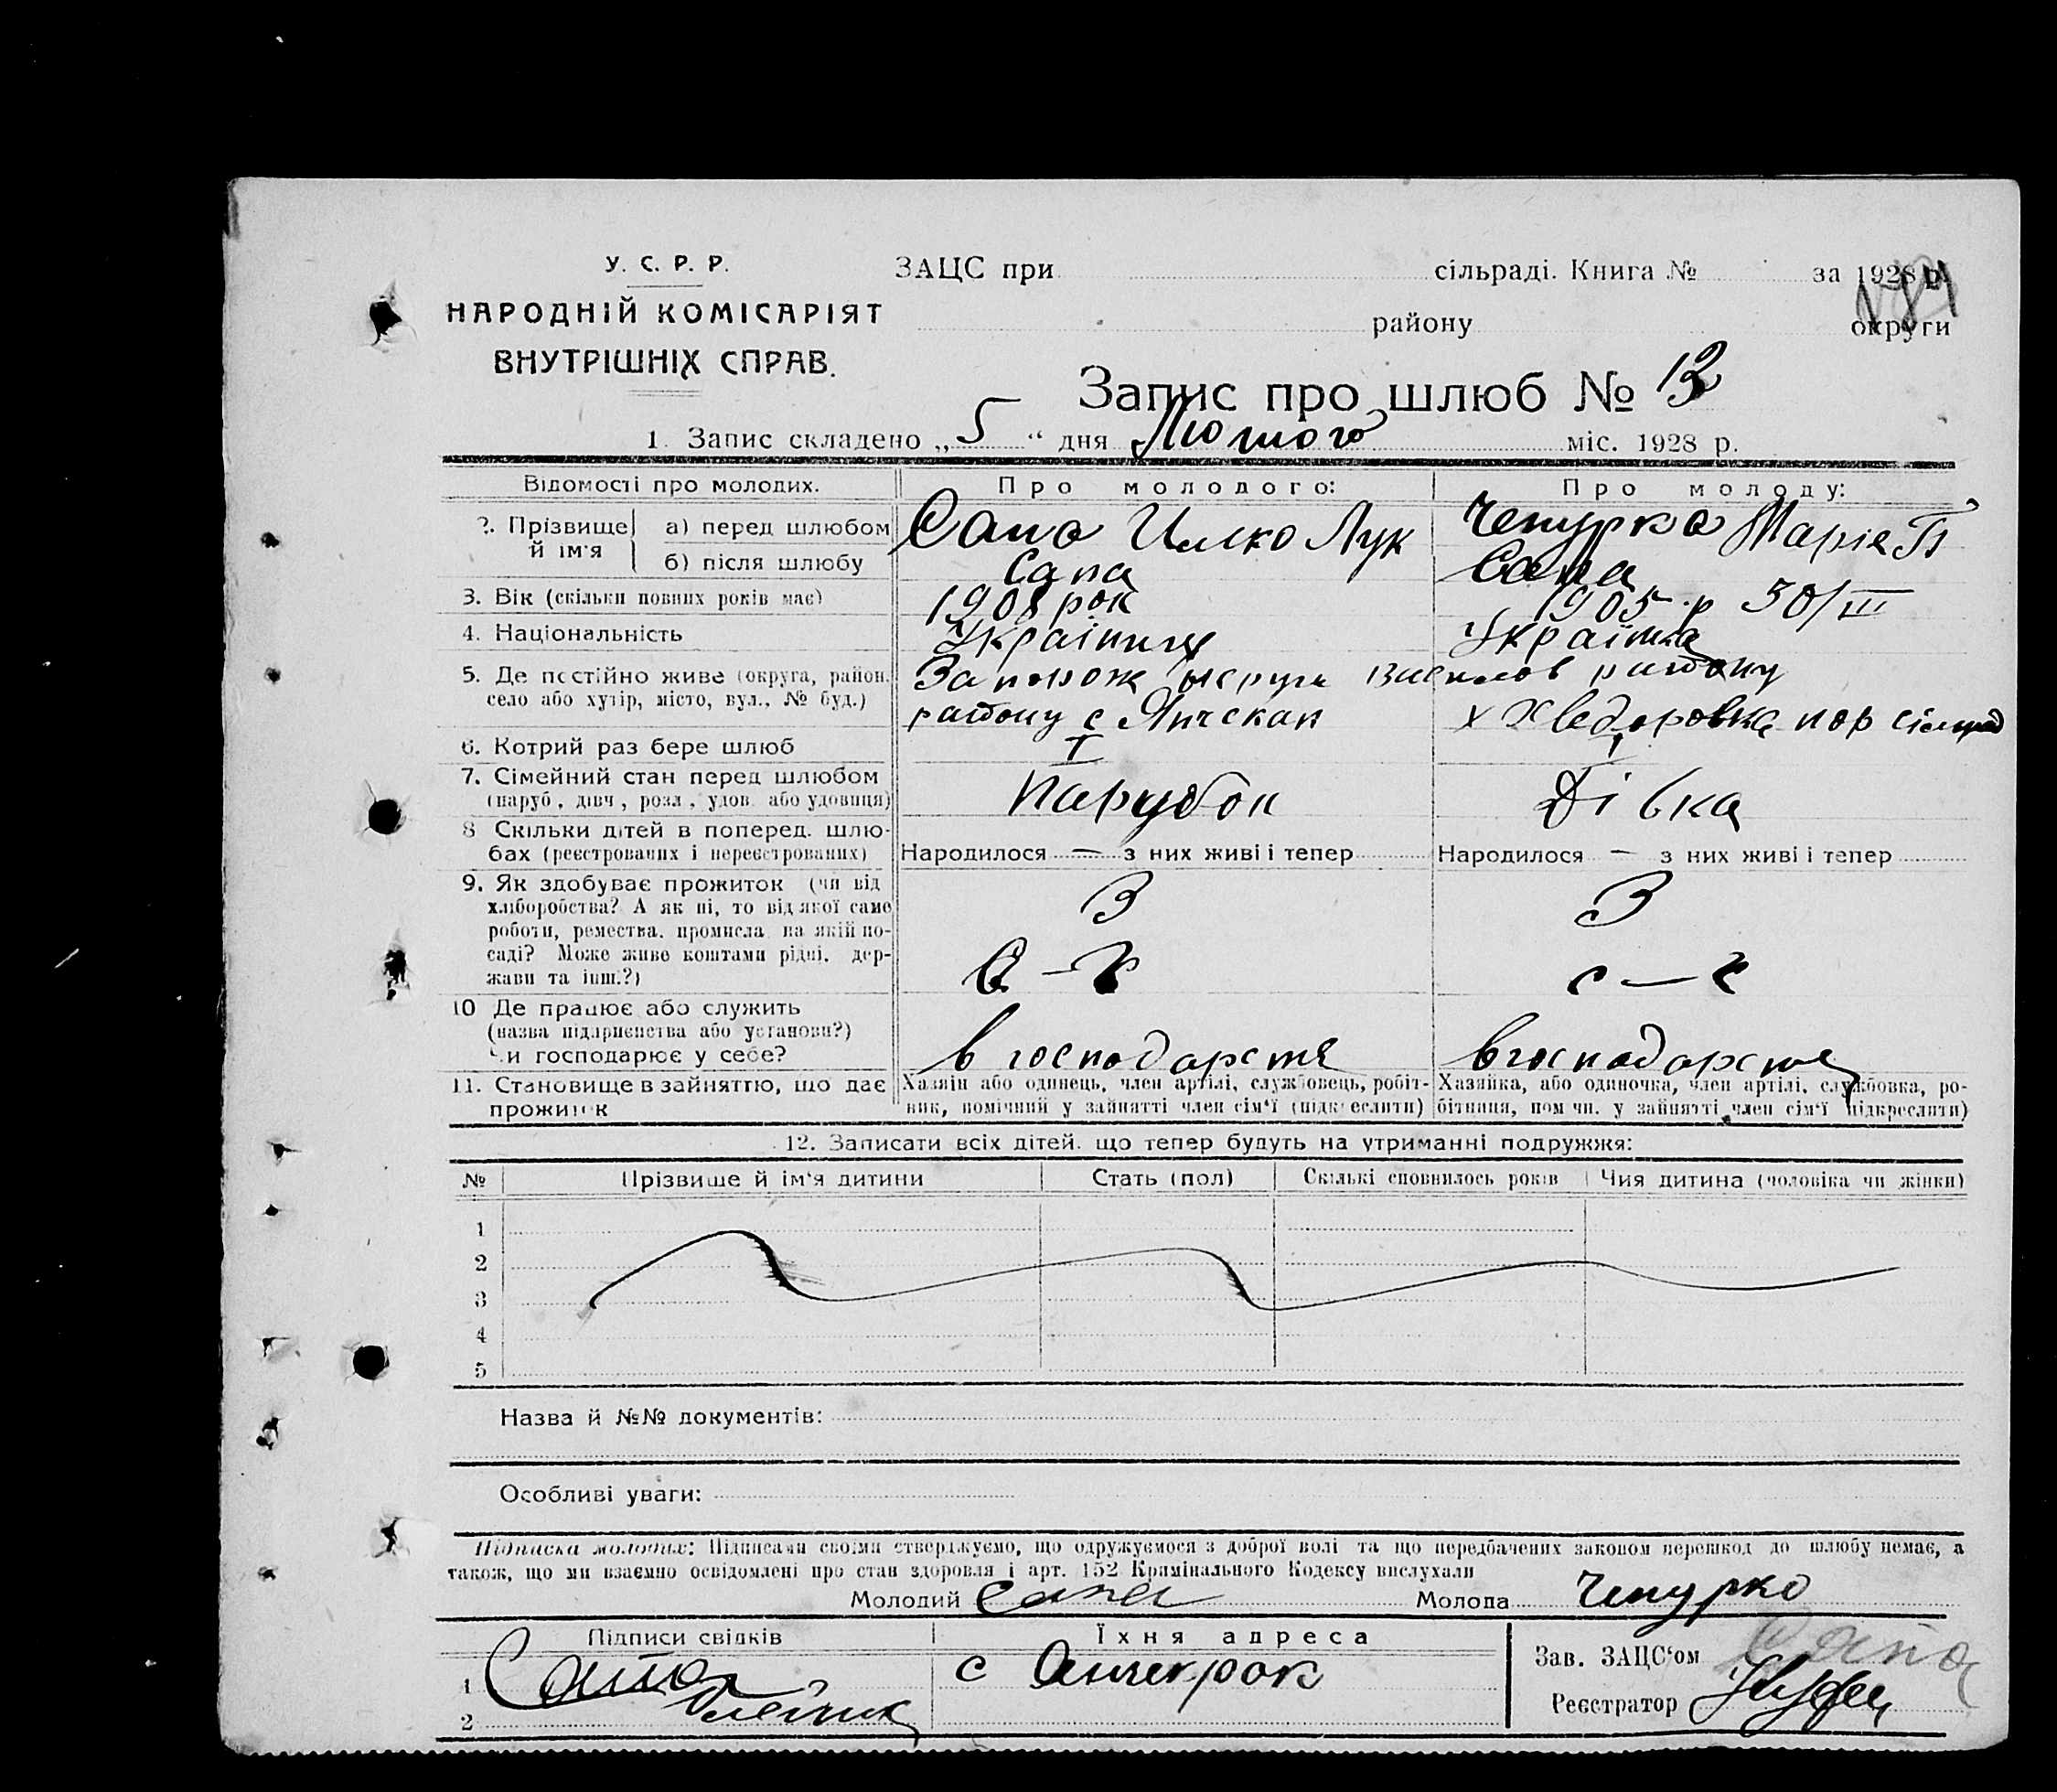 У. С. Р. Р.
НАРОДНІЙ КОМІСАРІЯТ
ВНУТРІШНІХ СПРАВ.
ЗАЦС при сільраді. Книга № за 1928 р.
району округи
Запис про шлюб № 13
1. Запис складено „5“ дня Лютого міс. 1928 р.
Відомості про молодих. Про молодого: Про молоду:
2. Прізвище й ім'я а) перед шлюбом Сапа Илько Лук Чепурка Марія
б) після шлюбу Сапа Сапа
3. Вік (скільки повних років має) 1908 рок 1905 р 30/III
4. Національність Українец Українка
5. Де постійно живе (округа, район, село або хутір, місто, вул., № буд.) Запорож округи району
району с Янчекрак х Хведоровка
6. Котрий раз бере шлюб I I
7. Сімейний стан перед шлюбом (паруб, дівч, розл, удов. або удовиця) Парубок Дівка
8 Скільки дітей в поперед. шлюбах (реєстрованих і нереєстрованих) Народилося — з них живі і тепер Народилося — з них живі і тепер
9. Як здобуває прожиток (чи від хліборобства? А як ні, то від якої саме роботи, ремества, промисла, на якій посаді? Може живе коштами рідні, держави та інш.?) З З
с — г с — г
10 Де працює або служить (назва підприємства або установи?) Чи господарює у себе? в господарстві в господарстві
11. Становище в зайняттю, що дає прожиток
Хазяїн або одинець, член артілі, службовець, робітник, помічний у зайнятті член сім'ї (підкреслити)
Хазяйка, або одиночка, член артілі, службовка, робітниця, помічн. у зайнятті член сім'ї (підкреслити)
12. Записати всіх дітей, що тепер будуть на утриманні подружжя:
№ Прізвище й ім'я дитини Стать (пол) Скількі сповнилось років Чия дитина (чоловіка чи жінки)
1
2
3
4
5
Назва й №№ документів:
Особливі уваги:
Підписка молодих: Підписами своїми стверджуємо, що одружуємося з доброї волі та що передбачених законом перешкод до шлюбу немає, а
також, що ми взаємно освідомлені про стан здоровля і арт. 152 Кримінального Кодексу вислухали
Молодий Сапа Молода Чепурко
Підписи свідків Їхня адреса
1 Сапа с Анчекрак Зав. ЗАЦС'ом Сапа
2 Олейник Реєстратор